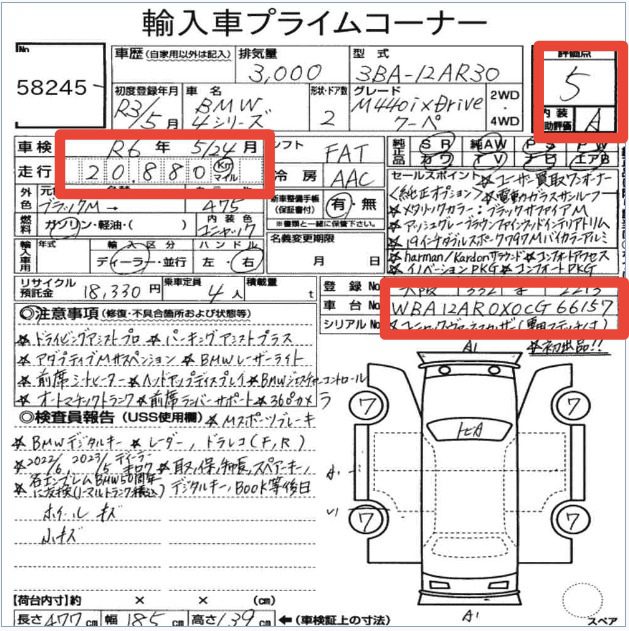 輸入車プライムコーナー
No
58245
車歴 (自家用以外は記入)
排気量
3,000
型式
3BA-12AR30
評価点
5
初度登録年月
R3/5月
車名
BMW
4シリーズ
形状・ドア数
2
グレード
M440i xDrive
クーペ
2WD
・
4WD
内装
補助評価
A
車検
R6年 5/24月
走行
20,880 Km マイル
シフト
FAT
冷房
AAC
純正品
SR
純AW
PS
PW
カワ
TV
ナビ
エアB
外色
ブラックM→
475
燃料
ガソリン・軽油・( )
内装色
コニャック
新車整備手帳
(保証書付)
有・無
※書類と一緒に保管して下さい。
名義変更期限
月 日
輸入車用
年式
輸入区分
ディーラー・並行
ハンドル
左・右
セールスポイント
☆ユーザー買取ワンオーナー
<純正オプション>
☆電動ガラスサンルーフ
☆メタリックカラー:ブラックサファイアM
☆アッシュグレーブラウンファインウッドインテリアトリム
☆19インチダブルスポーク797Mバイカラーアルミ
☆harman/Kardonサラウンド ☆コンフォートアクセス
☆イノベーションPKG ☆コンフォートPKG
リサイクル預託金
18,330円
乗車定員
4人
積載量
t
登録No
車台No
WBA12AR0X0CG66157
シリアルNo
☆初出品!!
◎注意事項 (修復・不具合箇所および状態等)
☆ドライビングアシストプロ ☆パーキングアシストプラス
☆アダプティブMサスペンション ☆BMWレーザーライト
☆前席シートヒーター ☆ヘッドアップディスプレイ ☆BMWジェスチャーコントロール
☆オートマチックトランク ☆前席ランバーサポート ☆360°カメラ
◎検査員報告 (USS使用欄)
☆Mスポーツブレーキ
☆BMWデジタルキー ☆レーダー,ドラレコ(F,R)
☆2022/6, 2023/5 ディーラーキロク ☆取,保,手帳,スペアキー,
デジタルキー,BOOK等後日
ホイールキズ
小キズ
A1
ヒA
7
7
7
7
A1
A1
スペア
【荷台内寸】約 × × (cm)
長さ 477cm 幅 185cm 高さ 139cm ←(車検証上の寸法)